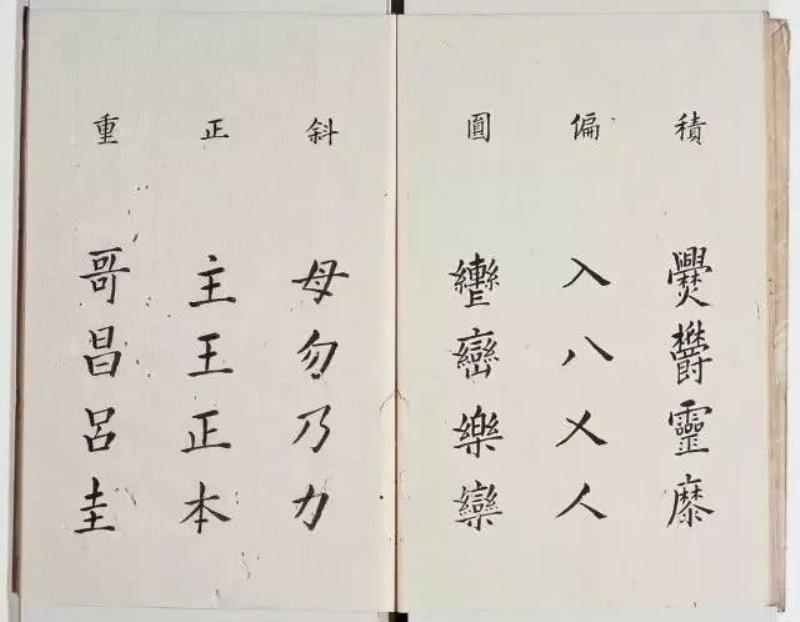 積
爨鬱靈
偏
入八乂人
圓
轡巒樂欒
斜
母勿乃力
正
主王正本
重
哥昌呂圭